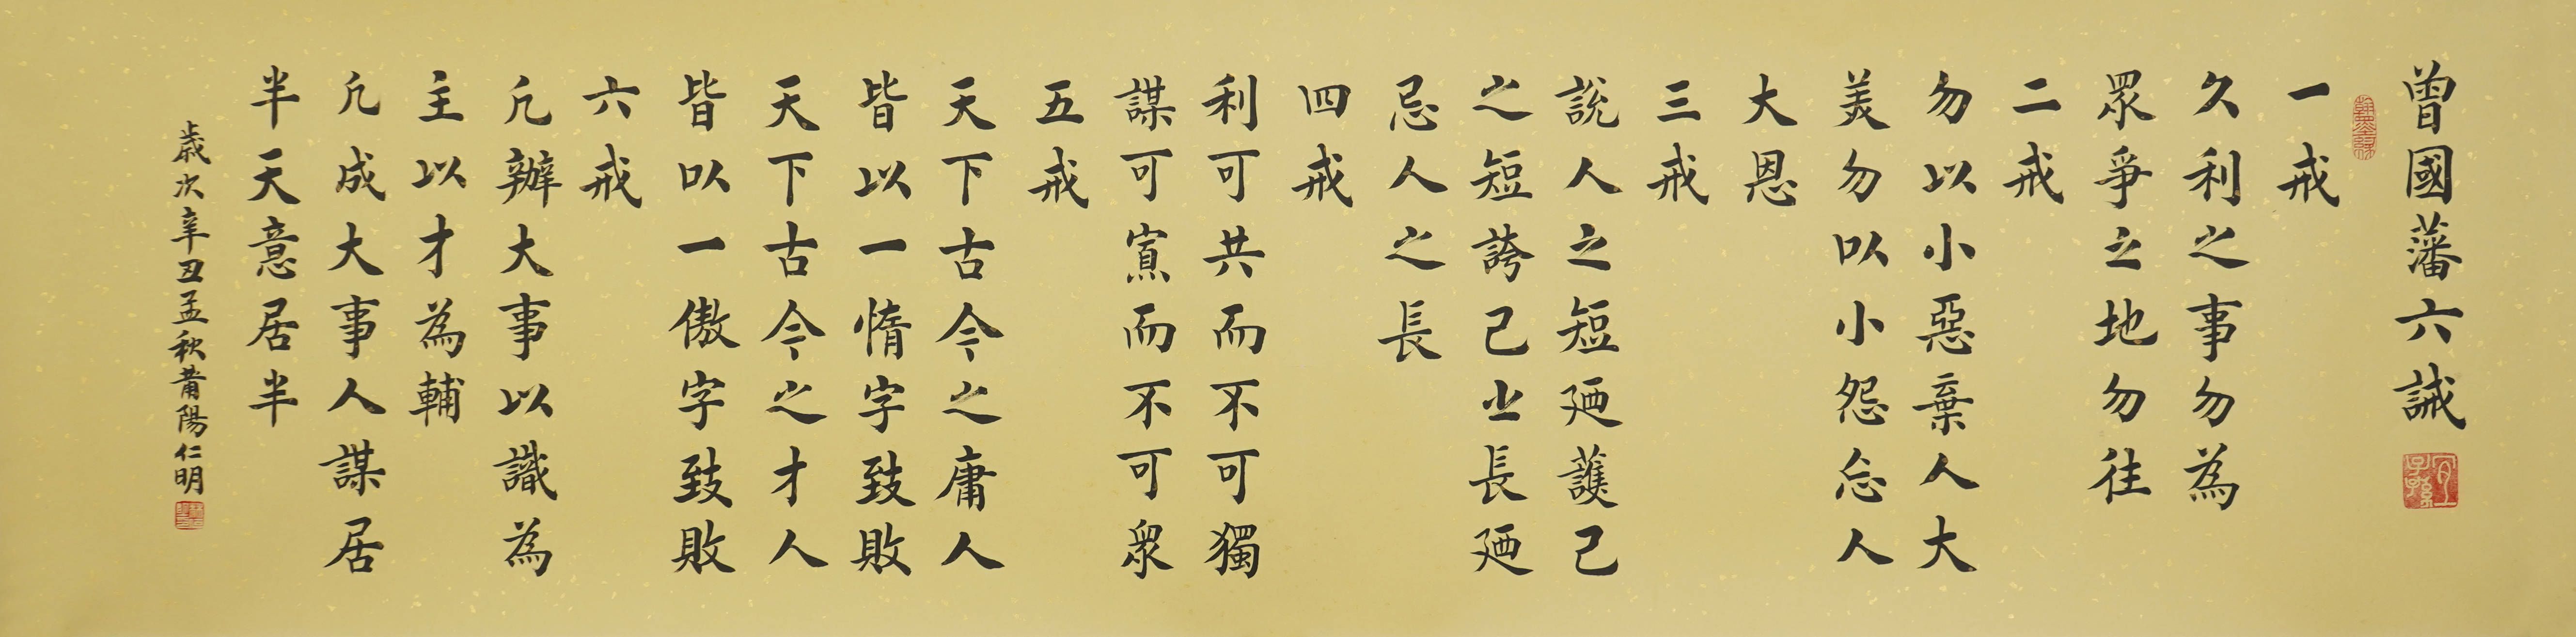 曾國藩六誡
宜子孫
一戒
久利之事勿為
眾爭之地勿往
二戒
勿以小惡棄人大
美勿以小怨忘人
大恩
三戒
說人之短廼護己
之短誇己之長廼
忌人之長
四戒
利可共而不可獨
謀可寡而不可眾
五戒
天下古今之庸人
皆以一惰字致敗
天下古今之才人
皆以一傲字致敗
六戒
凢辦大事以識為
主以才為輔
凢成大事人謀居
半天意居半
歲次辛丑孟秋莆陽仁明